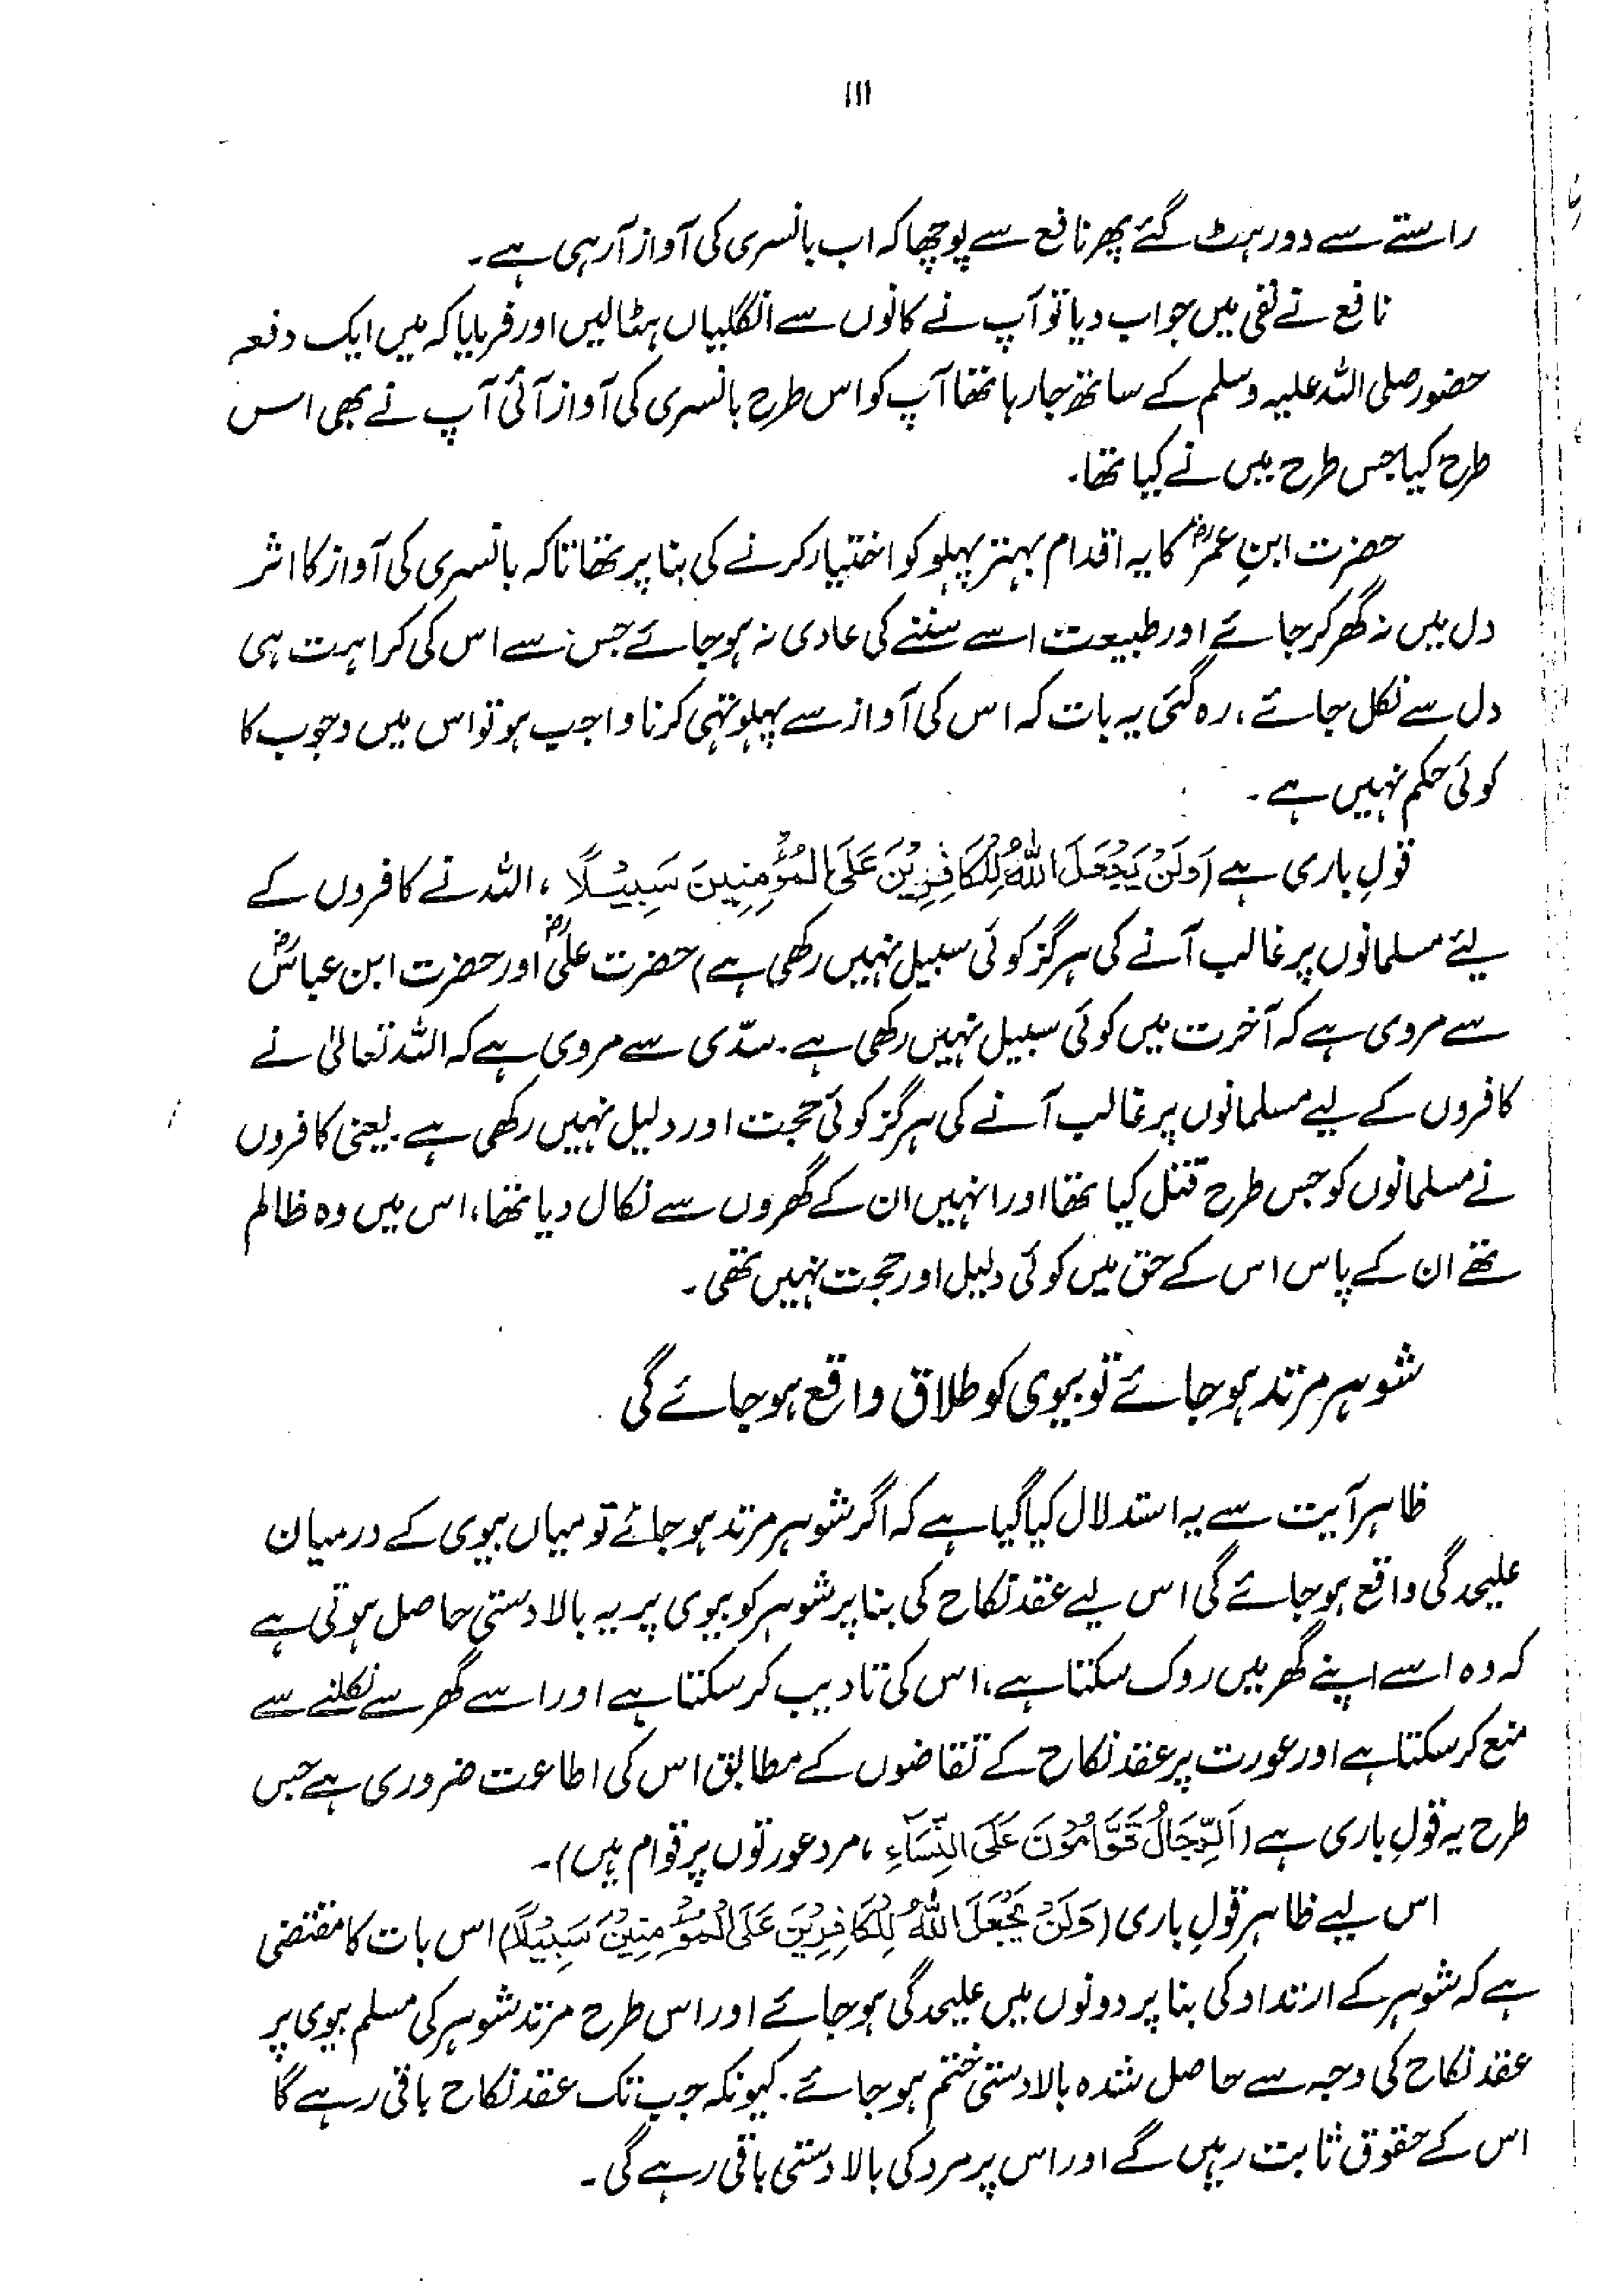 ۱۱۱
راستے سے دور ہٹ گئے پھر نافع سے پوچھا کہ اب بانسری کی آواز آرہی ہے۔
نافع نے نفی میں جواب دیا تو آپ نے کانوں سے انگلیاں ہٹالیں اور فرمایا کہ میں ایک دفعہ
حضور صلی اللہ علیہ وسلم کے ساتھ جارہا تھا آپ کو اس طرح بانسری کی آواز آئی آپ نے بھی اس
طرح کیا جس طرح میں نے کیا تھا۔
حضرت ابنِ عمرؓ کا یہ اقدام بہتر پہلو کو اختیار کرنے کی بنا پر تھا تاکہ بانسری کی آواز کا اثر
دل میں نہ گھر کر جائے اور طبیعت اسے سننے کی عادی نہ ہو جائے جس سے اس کی کراہت ہی
دل سے نکل جائے، رہ گئی یہ بات کہ اس کی آواز سے پہلو تہی کرنا واجب ہو تو اس میں وجوب کا
کوئی حکم نہیں ہے۔
قولِ باری ہے (وَلَنْ يَجْعَلَ اللهُ لِلْكَافِرِيْنَ عَلَى الْمُؤْمِنِيْنَ سَبِيْلًا، اللہ نے کافروں کے
لیئے مسلمانوں پر غالب آنے کی ہرگز کوئی سبیل نہیں رکھی ہے) حضرت علیؓ اور حضرت ابن عباسؓ
سے مروی ہے کہ آخرت میں کوئی سبیل نہیں رکھی ہے۔ سدّی سے مروی ہے کہ اللہ تعالیٰ نے
کافروں کے لیے مسلمانوں پر غالب آنے کی ہرگز کوئی حجت اور دلیل نہیں رکھی ہے۔ یعنی کافروں
نے مسلمانوں کو جس طرح قتل کیا تھا اور انہیں ان کے گھروں سے نکال دیا تھا، اس میں وہ ظالم
تھے ان کے پاس اس کے حق میں کوئی دلیل اور حجت نہیں تھی۔
شوہر مرتد ہو جائے تو بیوی کو طلاق واقع ہو جائے گی
ظاہر آیت سے یہ استدلال کیا گیا ہے کہ اگر شوہر مرتد ہو جائے تو میاں بیوی کے درمیان
علیحدگی واقع ہو جائے گی اس لیے عقد نکاح کی بنا پر شوہر کو بیوی پر یہ بالادستی حاصل ہوتی ہے
کہ وہ اسے اپنے گھر میں روک سکتا ہے، اس کی تادیب کر سکتا ہے اور اسے گھر سے نکلنے سے
منع کر سکتا ہے اور عورت پر عقد نکاح کے تقاضوں کے مطابق اس کی اطاعت ضروری ہے جس
طرح یہ قولِ باری ہے (اَلرِّجَالُ قَوَّامُوْنَ عَلَى النِّسَآءِ، مرد عورتوں پر قوام ہیں)۔
اس لیے ظاہر قولِ باری (وَلَنْ يَجْعَلَ اللهُ لِلْكَافِرِيْنَ عَلَى الْمُؤْمِنِيْنَ سَبِيْلًا) اس بات کا مقتضی
ہے کہ شوہر کے ارتداد کی بنا پر دونوں میں علیحدگی ہو جائے اور اس طرح مرتد شوہر کی مسلم بیوی پر
عقد نکاح کی وجہ سے حاصل شدہ بالادستی ختم ہو جائے۔ کیونکہ جب تک عقد نکاح باقی رہے گا
اس کے حقوق ثابت رہیں گے اور اس پر مرد کی بالادستی باقی رہے گی۔